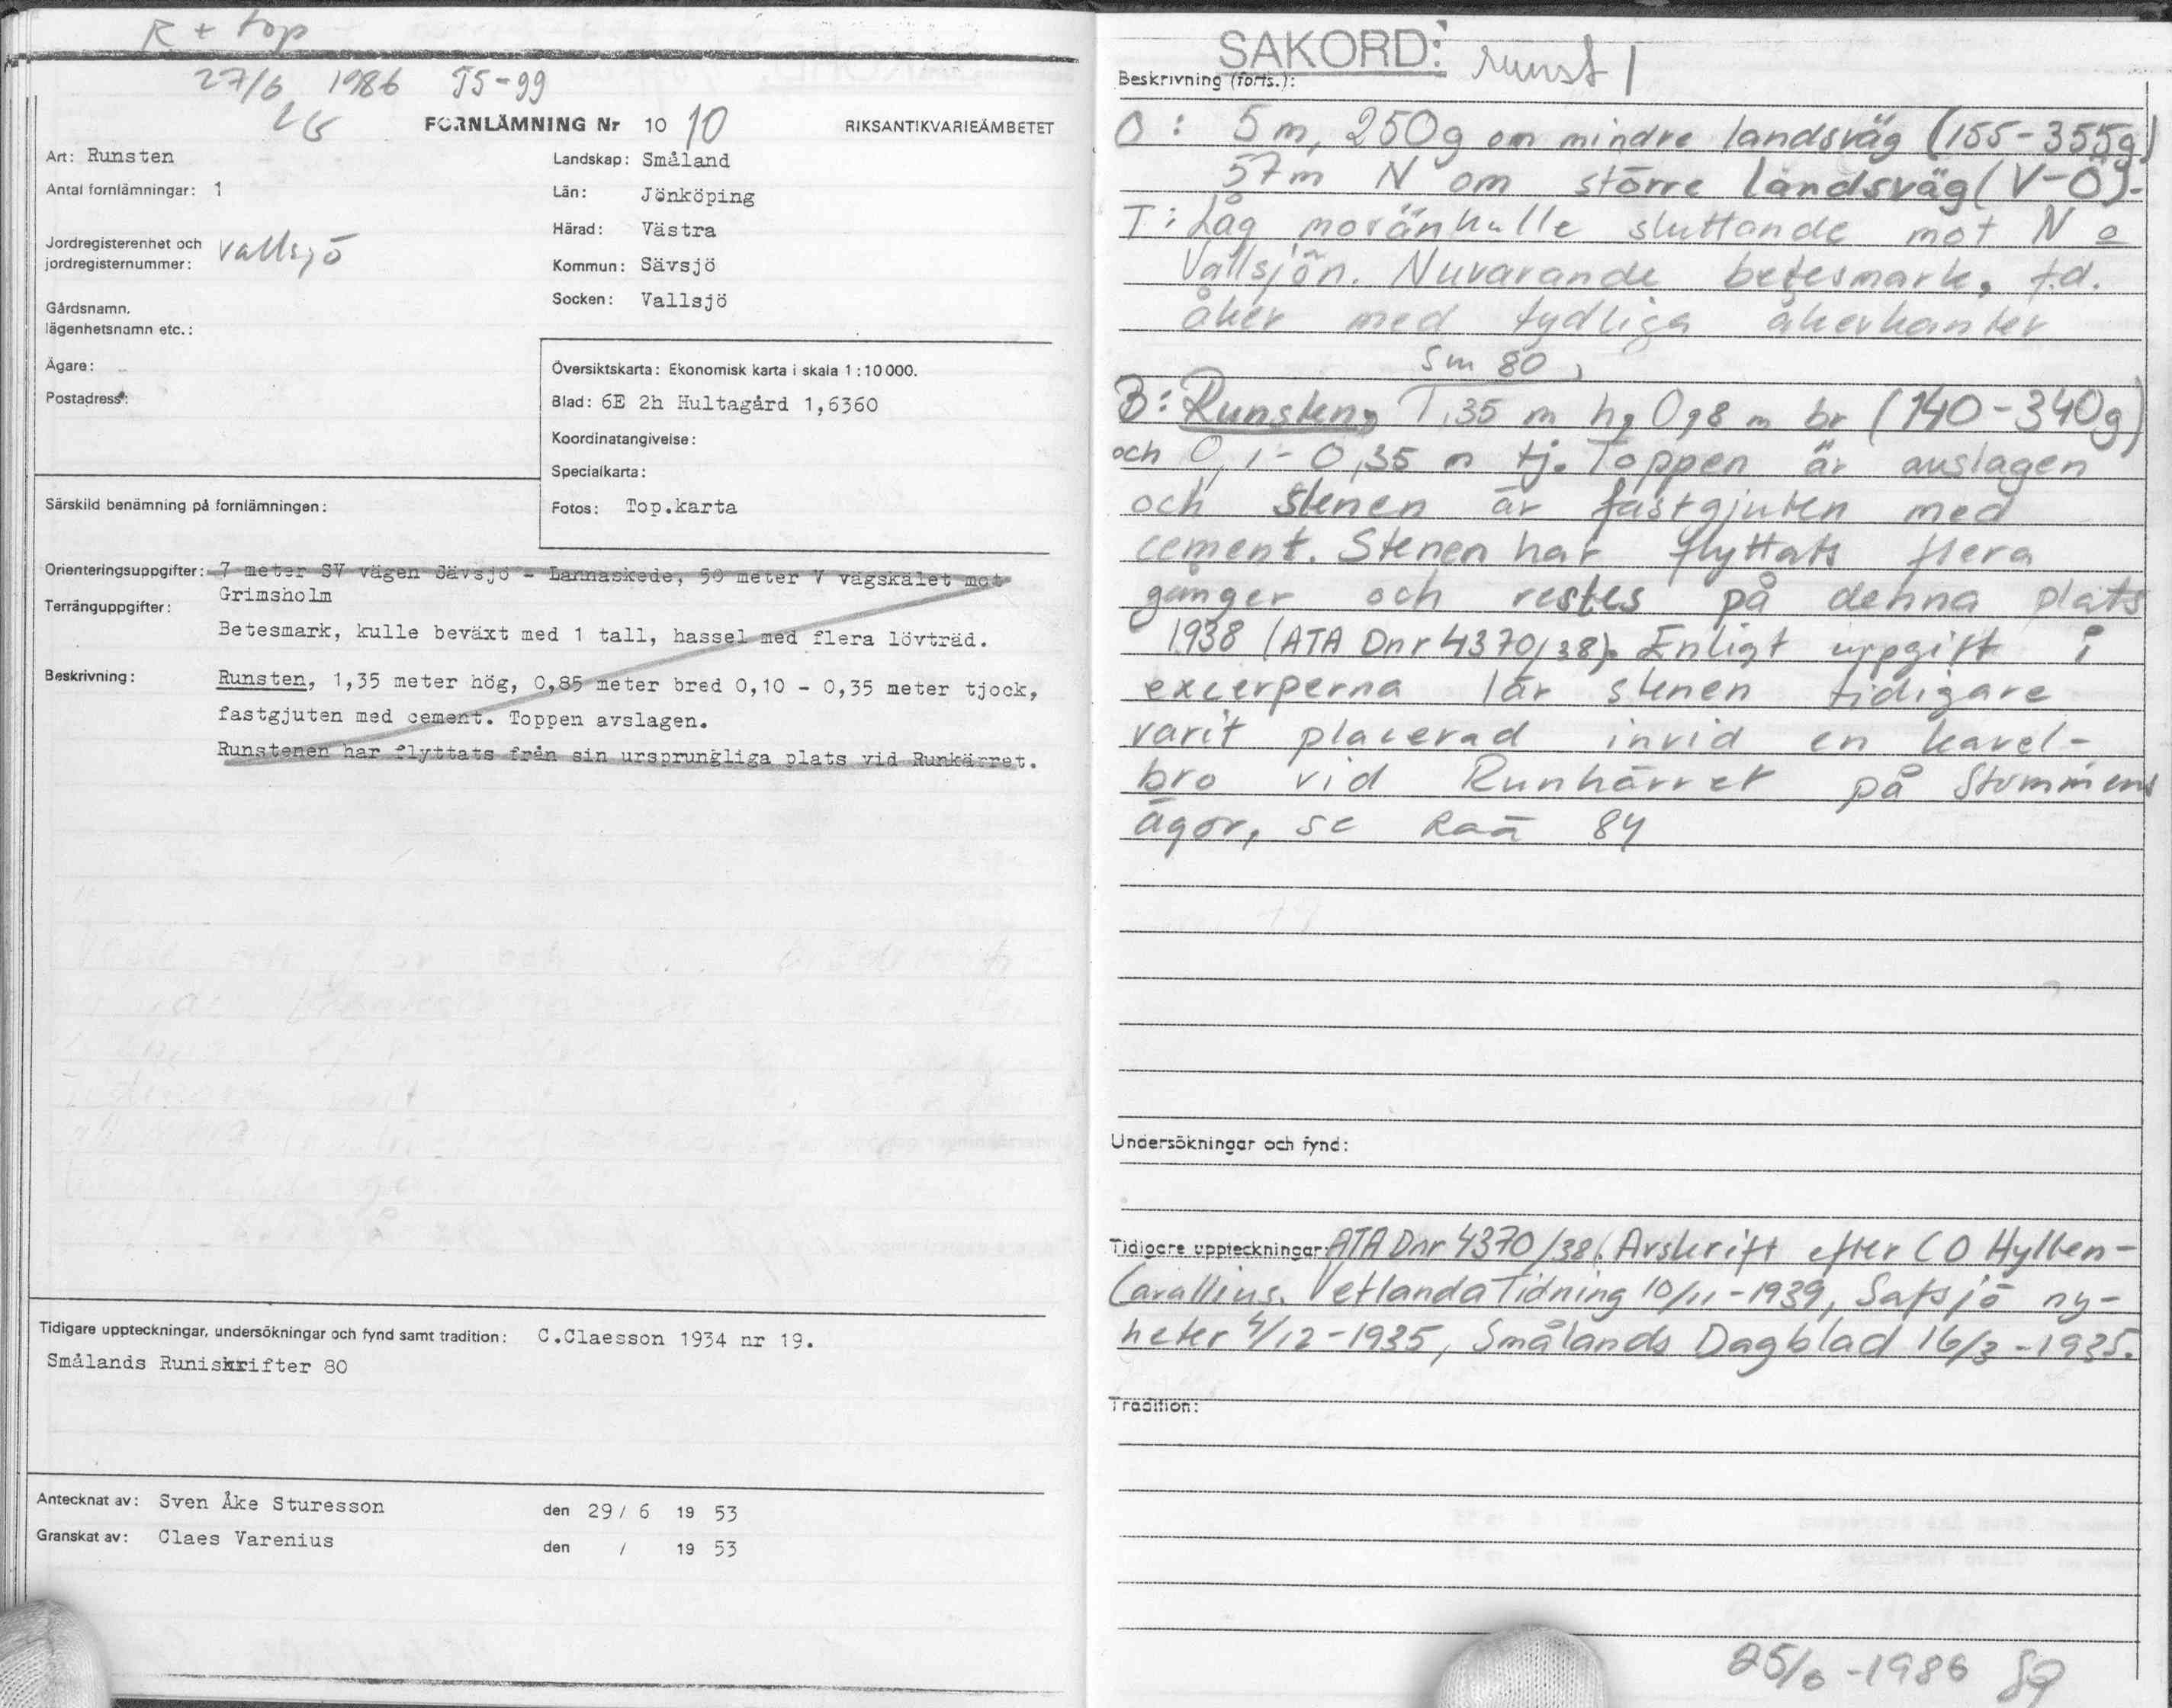 R + top
27/6 1986 55-99
FORNLÄMNING Nr 10 10 RIKSANTIKVARIEÄMBETET
Art: Runsten
Antal fornlämningar: 1
Jordregisterenhet och
jordregisternummer: Vallsjö
Gårdsnamn,
lägenhetsnamn etc.:
Ägare:
Postadress:
Landskap: Småland
Län: Jönköping
Härad: Västra
Kommun: Sävsjö
Socken: Vallsjö
Översiktskarta: Ekonomisk karta i skala 1:10000.
Blad: 6E 2h Hultagård 1,6360
Koordinatangivelse:
Specialkarta:
Fotos: Top.karta
Särskild benämning på fornlämningen:
Orienteringsuppgifter: 7 meter SV vägen Sävsjö - Lannaskede, 50 meter V vägskälet mot
Grimsholm
Terränguppgifter:
Betesmark, kulle beväxt med 1 tall, hassel med flera lövträd.
Beskrivning: Runsten, 1,35 meter hög, 0,85 meter bred 0,10 - 0,35 meter tjock,
fastgjuten med cement. Toppen avslagen.
Runstenen har flyttats från sin ursprungliga plats vid Runkärret.
Tidigare uppteckningar, undersökningar och fynd samt tradition: C.Claesson 1934 nr 19.
Smålands Runiskrifter 80
Antecknat av: Sven Åke Sturesson den 29 / 6 19 53
Granskat av: Claes Varenius den / 19 53
SAKORD: runst 1
Beskrivning (forts.):
O: 5 m, 250g om mindre landsväg (155-355g)
57m N om större landsväg (V-Ö).
T: Låg moränkulle sluttande mot N o
Vallsjön. Nuvarande betesmark, f.d.
åker med tydliga åkerkanter
Sm 80,
B: Runsten, 1,35 m h, 0,8 m br (140-340g)
och 0,1-0,35 m tj. Toppen är avslagen
och stenen är fastgjuten med
cement. Stenen har flyttats flera
gånger och restes på denna plats
1938 (ATA Dnr 4370/38). Enligt uppgift i
excerperna lär stenen tidigare
varit placerad invid en kavel-
bro vid Runkärret på Stommens
ägor, se Raä 84
Undersökningar och fynd:
Tidigare uppteckningar: ATA Dnr 4370/38. Avskrift efter C O Hyltén-
Cavallius. Vetlanda Tidning 10/11-1939, Safsjö ny-
heter 4/12-1935, Smålands Dagblad 16/3-1935.
Tradition:
25/6-1986